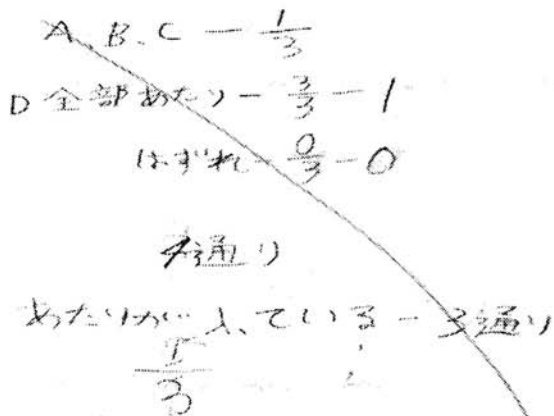 A、B、C － 1/3
D 全部あたり－ 3/3 － 1
はずれ－ 0/3 － 0
4通り
あたりが入っている － 3通り